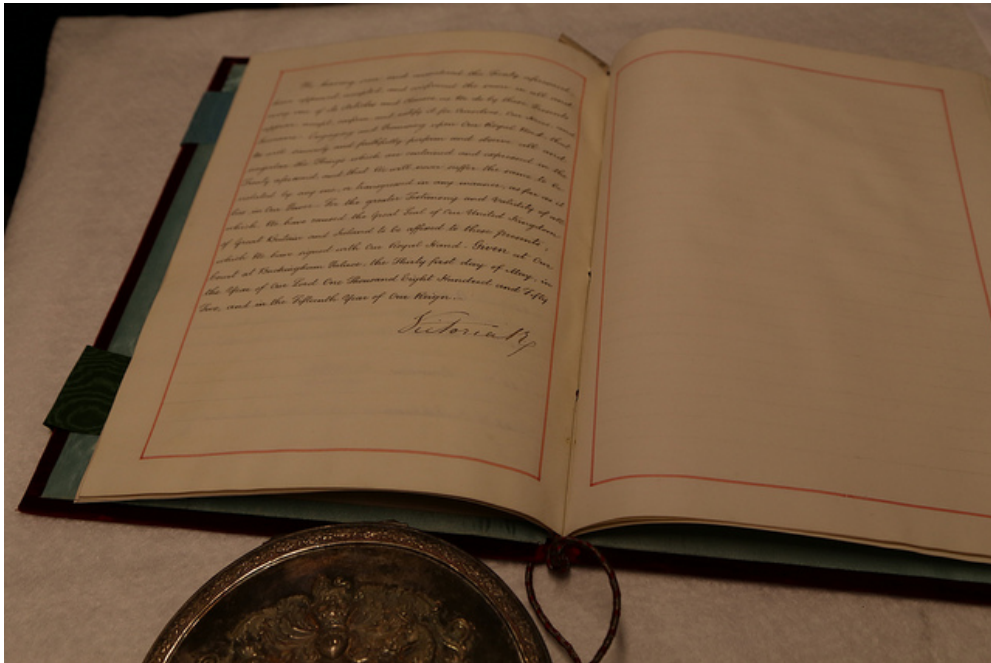 We having seen and considered the Treaty aforesaid,
have approved, accepted, and confirmed the same in all and
every one of its Articles and Clauses, as We do by these Presents
approve, accept, confirm, and ratify it for Ourselves, Our Heirs, and
Successors: Engaging and Promising upon Our Royal Word, that
We will sincerely and faithfully perform and observe all and
singular the Things which are contained and expressed in the
Treaty aforesaid, and that We will never suffer the same to be
violated by any one, or transgressed in any manner, as far as it
lies in Our Power. For the greater Testimony and Validity of all
which, We have caused the Great Seal of Our United Kingdom
of Great Britain and Ireland to be affixed to these Presents,
which We have signed with Our Royal Hand. Given at Our
Court at Buckingham Palace, the Thirty first day of May, in
the Year of Our Lord One Thousand Eight Hundred and Fifty
Two, and in the Fifteenth Year of Our Reign.
Victoria R